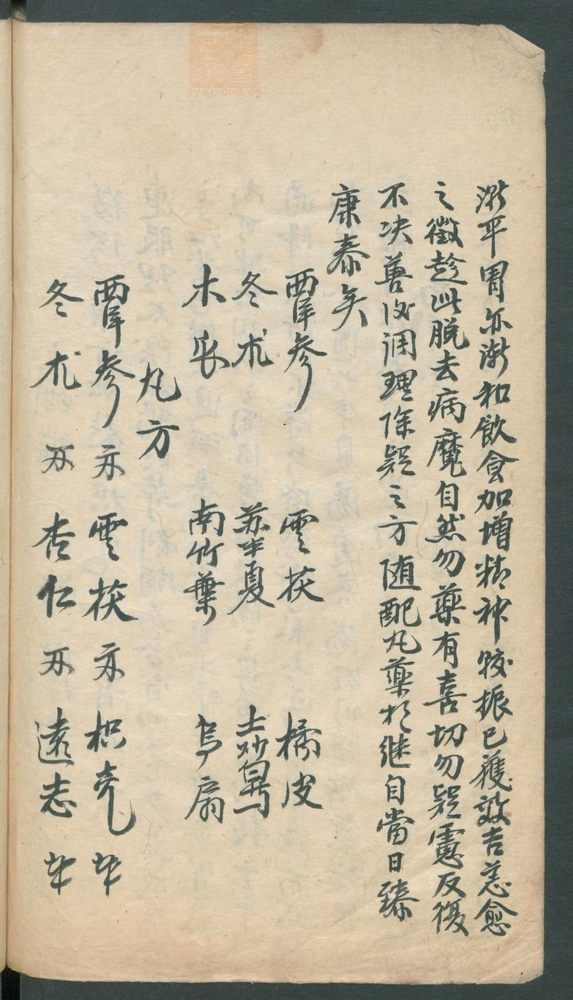 漸平胃亦漸和飲食加增精神較振已獲效吉羔愈
之徵趁此脱去病魔自然勿藥有喜切勿疑慮反復
不决善後调理除疑之方随配丸藥於继自當日臻
康泰矣
西洋參 雲茯 橘皮
冬术 苏半夏 土炒
木瓜 南竹葉 烏扇
丸方
西洋參 雲茯 枳壳
冬术 杏仁 遠志